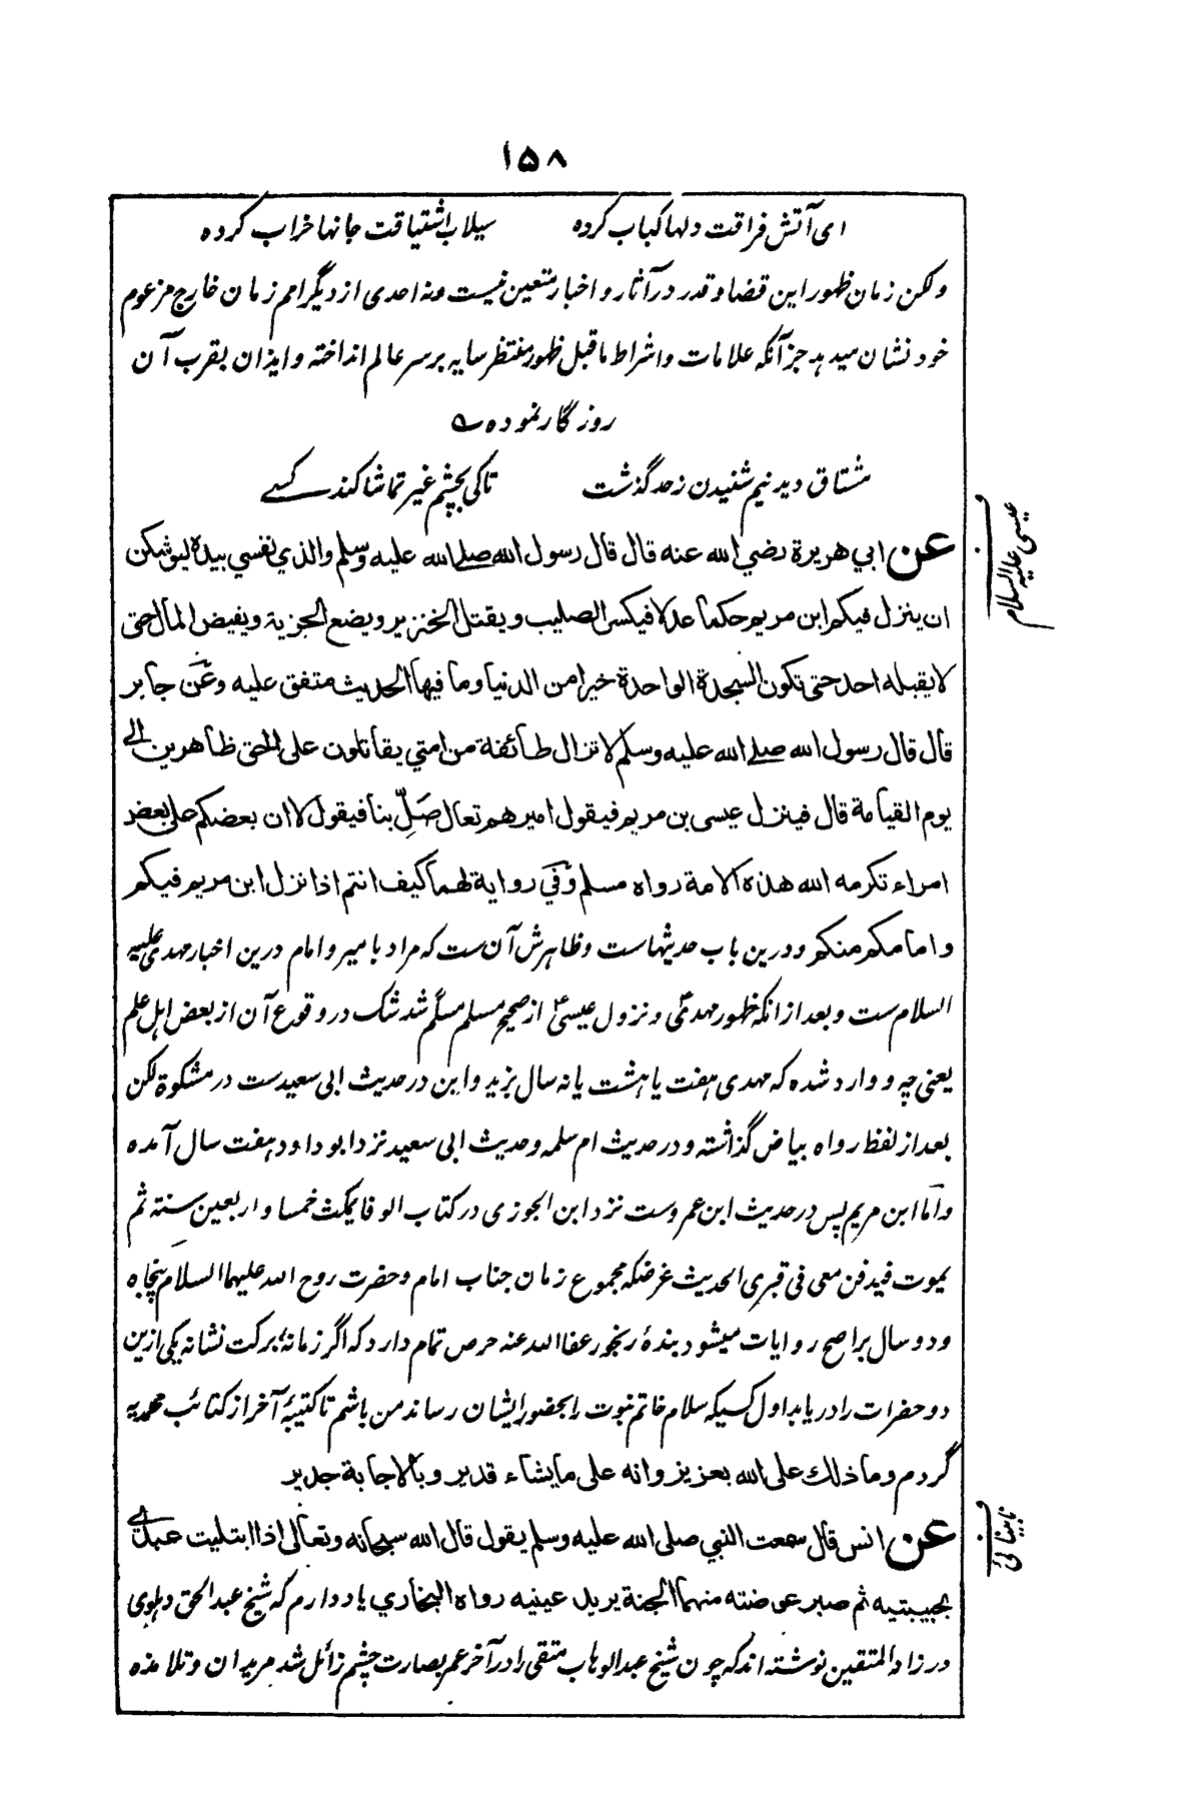 ۱۵۸
ای آتش فراقت دلها کباب کرده سیلاب اشتیاقت جانها خراب کرده
ولکن زمان ظهور این قضا و قدر در آثار و اخبار متعین نیست و نه احدی از دیگر امم زمان خارج مزعوم
خود نشان میدهد جز آنکه علامات و اشراط ما قبل ظهور منتظر سایه بر سر عالم انداخته و ایذان بقرب آن
روزگار نموده
مشتاق دیدنیم شنیدن ز حد گذشت تا کی بچشم غیر تماشا کند کسے
عیسی علیه السلام
عن ابي هريرة رضي الله عنه قال قال رسول الله صلے الله عليه وسلم والذي نفسي بيده ليوشكن
ان ينزل فيكم ابن مريم حكما عدلا فيكسر الصليب ويقتل الخنزير ويضع الجزية ويفيض المال حتى
لا يقبله احد حتى تكون السجدة الواحدة خيرا من الدنيا وما فيها الحديث متفق عليه وعن جابر
قال قال رسول الله صلے الله عليه وسلم لا تزال طائفة من امتي يقاتلون على الحق ظاهرين الے
يوم القيامة قال فينزل عيسى بن مريم فيقول اميرهم تعال صَلِّ بنا فيقول لا ان بعضكم على بعض
امراء تكرمه الله هذه الامة رواه مسلم وفي رواية لهما كيف انتم اذا نزل ابن مريم فيكم
وامامكم منكم ودرین باب حدیثهاست وظاهرش آن ست که مراد بامیر و امام درین اخبار مهدی علیه
السلام ست و بعد از انکه ظهور مهدیؑ و نزول عیسیؑ از صحیح مسلم مسلّم شد شک در وقوع آن از بعض اہل علم
یعنی چه و وارد شده که مهدی هفت یا هشت یا نه سال بزید و این در حدیث ابی سعید ست در مشکوة لکن
بعد از لفظ رواه بیاض گذاشته و در حدیث ام سلمه و حدیث ابی سعید نزد ابو داود هفت سال آمده
و امّا ابن مریم پس در حدیث ابن عمرو ست نزد ابن الجوزی در کتاب الوفا یمکث خمسا و اربعین سنة ثم
یموت فیدفن معی فی قبری الحدیث غرضکه مجموع زمان جناب امام و حضرت روح الله علیهما السلام پنجاه
و دو سال بر اصح روایات میشود بندهٔ رنجور عفا الله عنه حرص تمام دارد که اگر زمانهٔ برکت نشانه یکی ازین
دو حضرات را دریابد اول کسیکه سلام خاتم نبوت را بحضور ایشان رساند من باشم تا کتیبهٔ آخر از کتائب محمدیه
گردم وما ذلك على الله بعزيز وانه على ما يشاء قدير وبالاجابة جدير
نابینائی
عن انس قال سمعت النبي صلى الله عليه وسلم يقول قال الله سبحانه وتعالى اذا ابتليت عبدي
بحبيبتيه ثم صبر عوضته منهما الجنة يريد عينيه رواه البخاري یاد دارم که شیخ عبدالحق دہلوی
در زاد المتقین نوشته اند که چون شیخ عبدالوهاب متقی را در آخر عمر بصارت چشم زائل شد مریدان و تلامذه